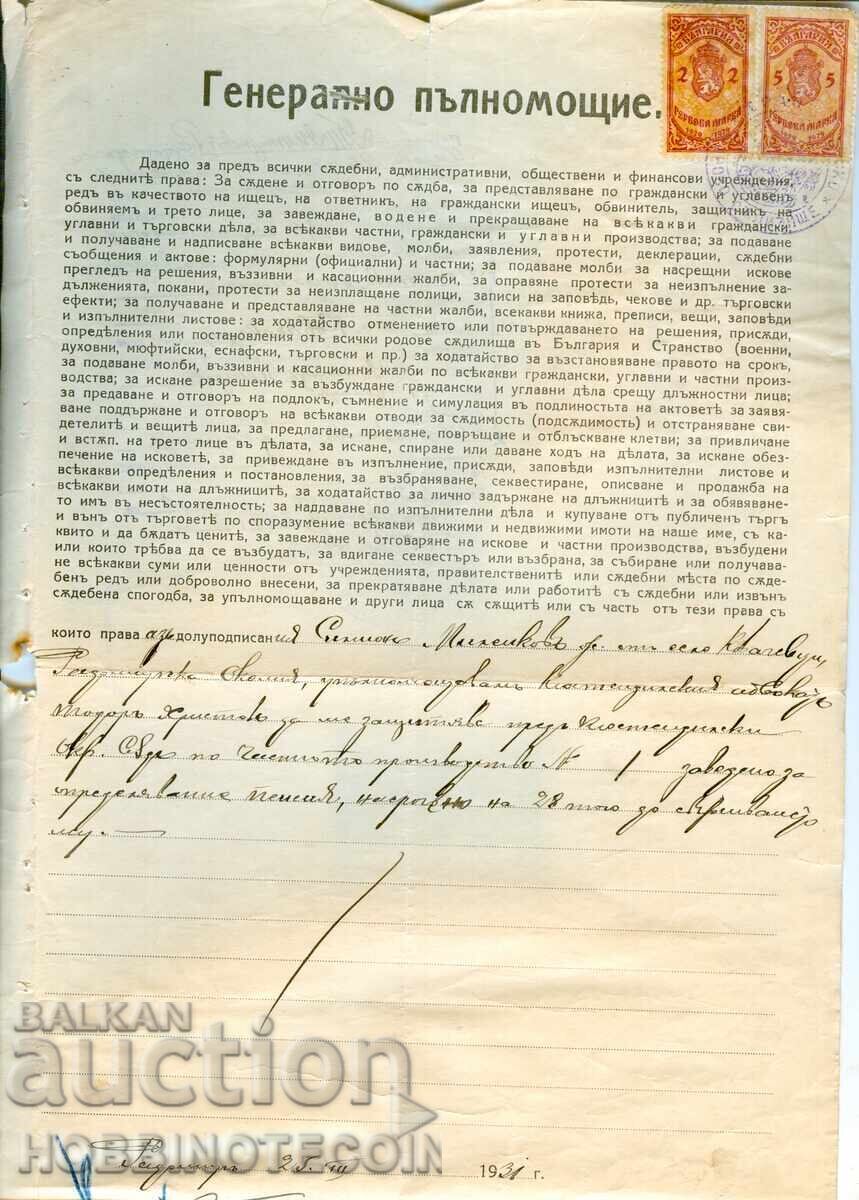 БЪЛГАРИЯ
2 2
ГЕРБОВА МАРКА
1929 1929
БЪЛГАРИЯ
5 5
ГЕРБОВА МАРКА
Генерално пълномощие.
Дадено за предъ всички сѫдебни, административни, обществени и финансови учреждения,
съ следнитѣ права: За сѫдене и отговоръ по сѫдба, за представляване по граждански и углавенъ
редъ въ качеството на ищецъ, на ответникъ, на граждански ищецъ, обвинитель, защитникъ на
обвиняемъ и трето лице, за завеждане, водене и прекращаване на всѣкакви граждански,
углавни и търговски дѣла, за всѣкакви частни, граждански и углавни производства; за подаване
и получаване и надписване всѣкакви видове, молби, заявления, протести, декларции, сѫдебни
съобщения и актове: формулярни (официални) и частни; за подаване молби за насрещни искове
прегледъ на решения, въззивни и касационни жалби, за оправяне протести за неизпълнение за-
дълженията, покани, протести за неизплащане полици, записи на заповѣдь, чекове и др. търговски
ефекти; за получаване и представляване на частни жалби, всекакви книжа, преписи, вещи, заповѣди
и изпълнителни листове: за ходатайство отменението или потвърждаването на решения, присѫди,
опредѣления или постановления отъ всички родове сѫдилища въ България и Странство (военни,
духовни, мюфтийски, еснафски, търговски и пр.) за ходатайство за възстановяване правото на срокъ,
за подаване молби, въззивни и касационни жалби по всѣкакви граждански, углавни и частни произ-
водства; за искане разрешение за възбуждане граждански и углавни дѣла срещу длъжностни лица;
за предаване и отговоръ на подлокъ, съмнение и симулация въ подлинностьта на актоветѣ за заявя-
ване поддържане и отговоръ на всѣкакви отводи за сѫдимость (подсѫдимость) и отстраняване сви-
детелитѣ и вещитѣ лица, за предлагане, приемане, повръщане и отблъскване клетви; за привличане
и встѫп. на трето лице въ дѣлата, за искане, спиране или даване ходъ на дѣлата, за искане обез-
печение на исковетѣ, за привеждане въ изпълнение, присѫди, заповѣди изпълнителни листове и
всѣкакви опредѣления и постановления, за възбраняване, секвестиране, описване и продажба на
всѣкакви имоти на длъжницитѣ, за ходатайство за лично задържане на длъжницитѣ и за обявяване-
то имъ въ несъстоятелность; за наддаване по изпълнителни дѣла и купуване отъ публиченъ търгъ
и вънъ отъ търговетѣ по споразумение всѣкакви движими и недвижими имоти на наше име, съ ка-
квито и да бѫдатъ ценитѣ, за завеждане и отговаряне на искове и частни производства, възбудени
или които трѣбва да се възбудатъ, за вдигане секвестъръ или възбрана, за събиране или получава-
не всѣкакви суми или ценности отъ учрежденията, правителственитѣ или сѫдебни мѣста по сѫде-
бенъ редъ или доброволно внесени, за прекратяване дѣлата или работитѣ съ сѫдебни или извънъ
сѫдебена спогодба, за упълномощаване и други лица сѫ сѫщитѣ или съ часть отъ тези права съ
които права азъ долуподписания Симионъ отъ село
Радомирска околия, упълномощавамъ Кюстендилския адвокатъ
Тодоръ Христовъ да ме защитява предъ Кюстендилски
Окр. Сѫдъ по Частното производство № 1 заведено за
определяване пенсия, насрочено на 28 того до свършванет
му.
Радомиръ 25. III 1931 г.
BALKAN
auction
HOBBINOTECOIN